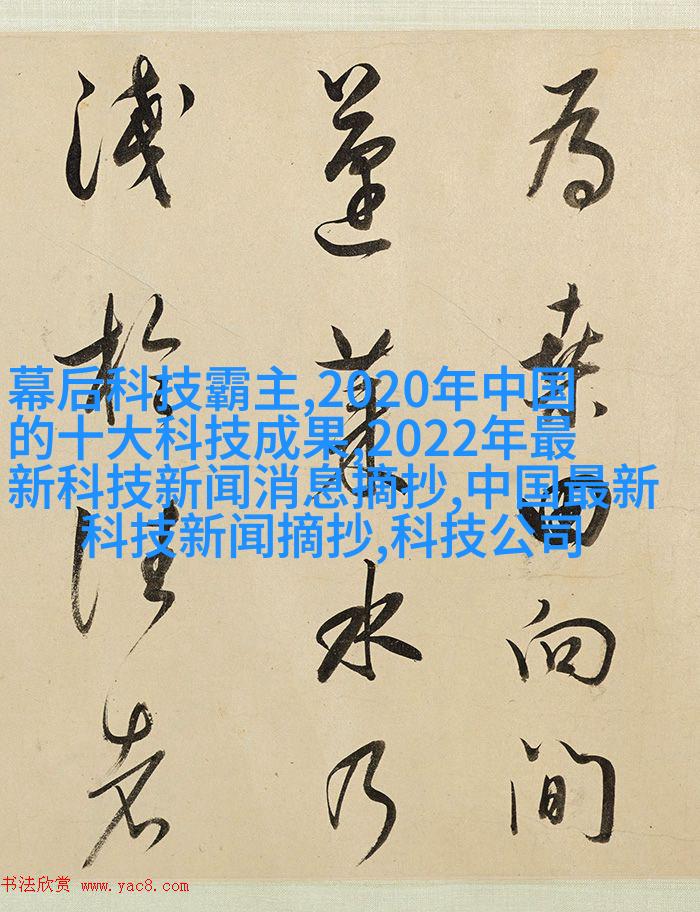 為桑田向間
蓬萊水乃
淺於往者
幕后科技霸主,2020年中国
的十大科技成果,2022年最
新科技新闻消息摘抄,中国最新
科技新闻摘抄,科技公司
书法欣赏 www.yac8.com